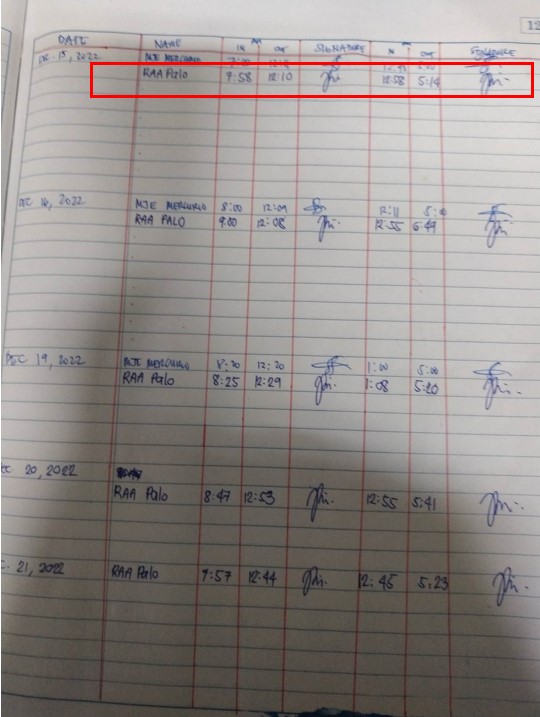 12
AM PM
DATE NAME IN OUT SIGNATURE IN OUT SIGNATURE
DEC 15, 2022 MJE MERCURIO
RAA Palo 7:58 12:10 12:58 5:14
DEC 16, 2022 MJE MERCURIO 8:00 12:09 12:11 5:00
RAA PALO 9:00 12:08 12:55
DEC 19, 2022 MJE MERCURIO 8:20 12:20 1:00 5:00
RAA Palo 8:25 12:29 1:08 5:20
20, 2022
RAA Palo 8:47 12:53 12:55 5:41
21, 2022 RAA Palo 7:57 12:44 12:45 5:23